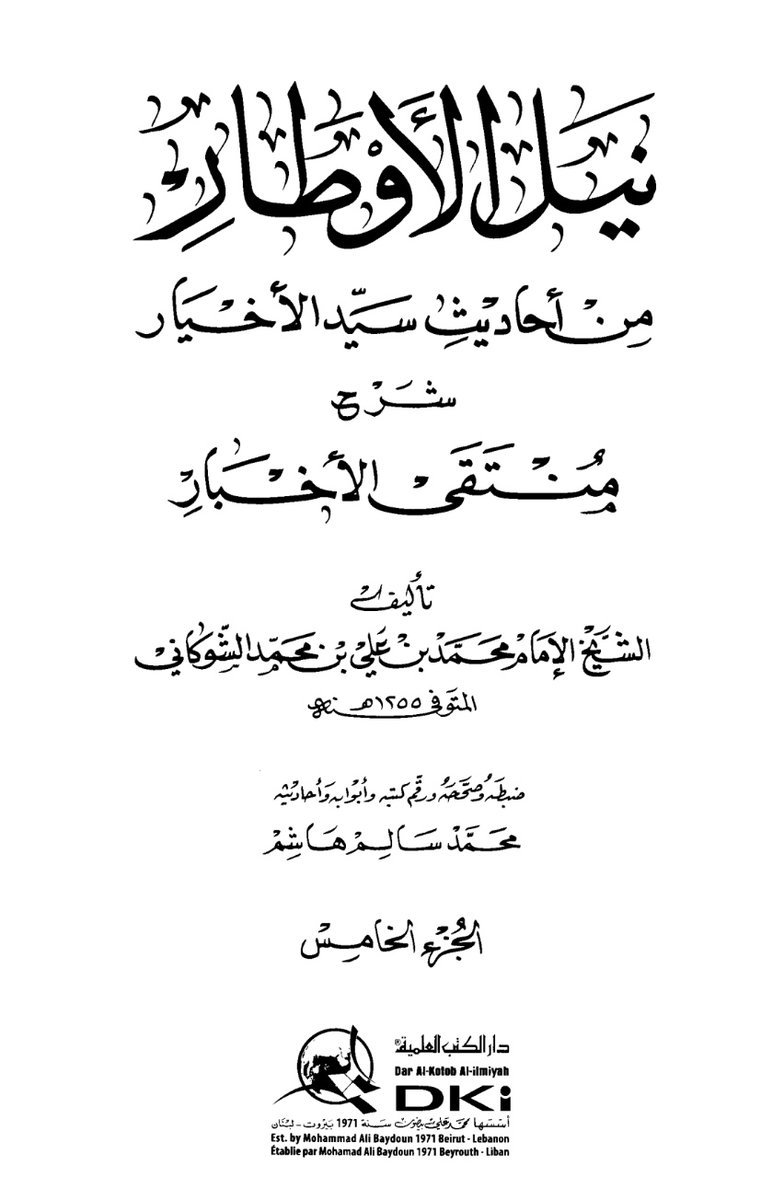 نَيْلُ الأَوْطَارِ
مِنْ أَحَادِيْثِ سَيِّدِ الأَخْيَار
شَرْح
مُنْتَقَى الأَخْبَارِ
تأليف
الشَّيْخ الإمَام مُحَمَّد بْن عَلِي بْن مُحَمَّد الشَّوكَانِي
المتوفى ١٢٥٥هـ سنة
ضبطه وصححه ورقم كتبه وأبوابه وأحاديثه
محَمَّدْ سَالِمْ هَاشِمْ
الجُزءُ الخامِسْ
دار الكتب العلمية®
Dar Al-Kotob Al-ilmiyah
DKi
أسسها محمد علي بيضون سنة 1971 بيروت - لبنان
Est. by Mohammad Ali Baydoun 1971 Beirut - Lebanon
Établie par Mohamad Ali Baydoun 1971 Beyrouth - Liban